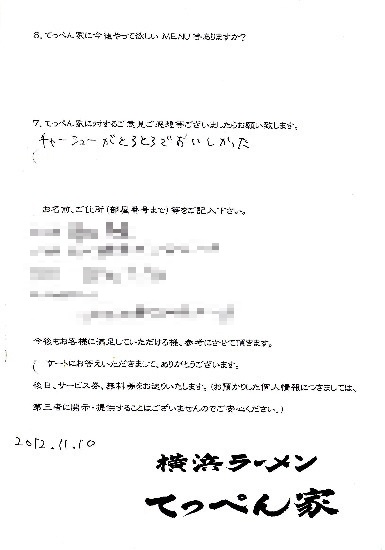 6. てっぺん家に今後やって欲しい MENU 等ありますか?
7. てっぺん家に対するご意見ご感想等ございましたらお願い致します。
チャーシューがとろとろでおいしかった
お名前、ご住所(部屋番号まで)等をご記入下さい。
今後もお客様に満足していただける様、参考にさせて頂きます。
ケートにお答えいただきまして、ありがとうございます。
後日、サービス券、無料券をお送りいたします。(お預かりした個人情報につきましては、
第三者に開示・提供することはございませんのでご安心ください。)
2012.11.10
横浜ラーメン
てっぺん家